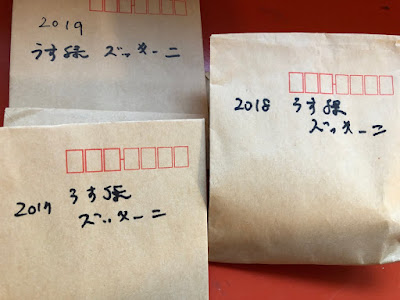 2019
うす緑 ズッキーニ
2018 うす緑
ズッキーニ
2017 うす緑
ズッキーニ